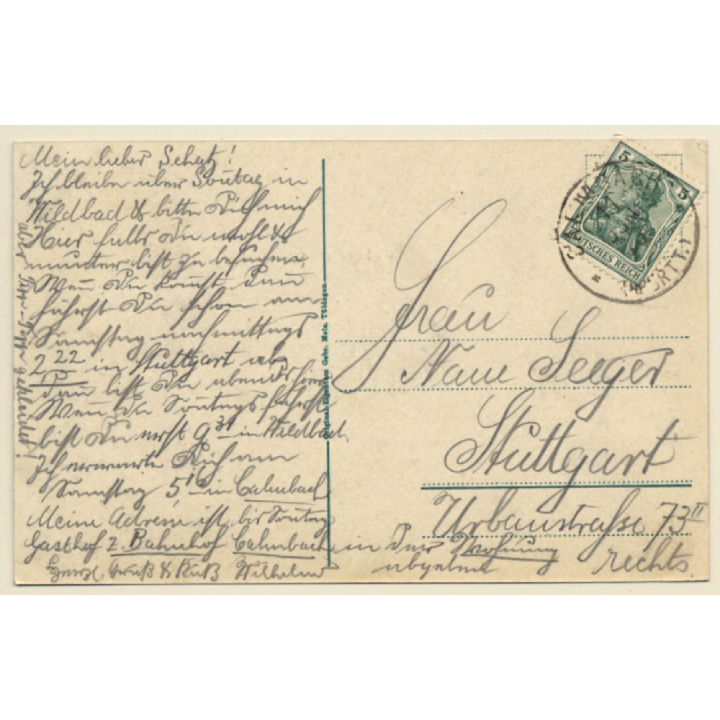 Mein lieber Schatz!
Ich bleibe über Sontag in
Wildbad & bitte Dich mich
Hier falls Du wohl &
munter bist zu besuchen.
Wen Du komst dan
fährst Du schon am
Samstag nachmittags
2 22 in Stuttgart ab
Dan bist Du abends hier
Wen Du Sontags fährst
bist Du erst 9 31 in Wildbad
Ich erwarte Dich am
Samstag 5 in Calmbach
Meine Adresse ist bis Sontag
Gasthof z. Bahnhof Calmbach
Herzl. Gruß & Kuß Wilhelm
aber gekleidet!
Gebr. Metz, Tübingen
5 5
DEUTSCHES REICH
Frau
Seeger
Stuttgart
Urbanstraße 73 II
rechts.
in der Wohnung
abgeben